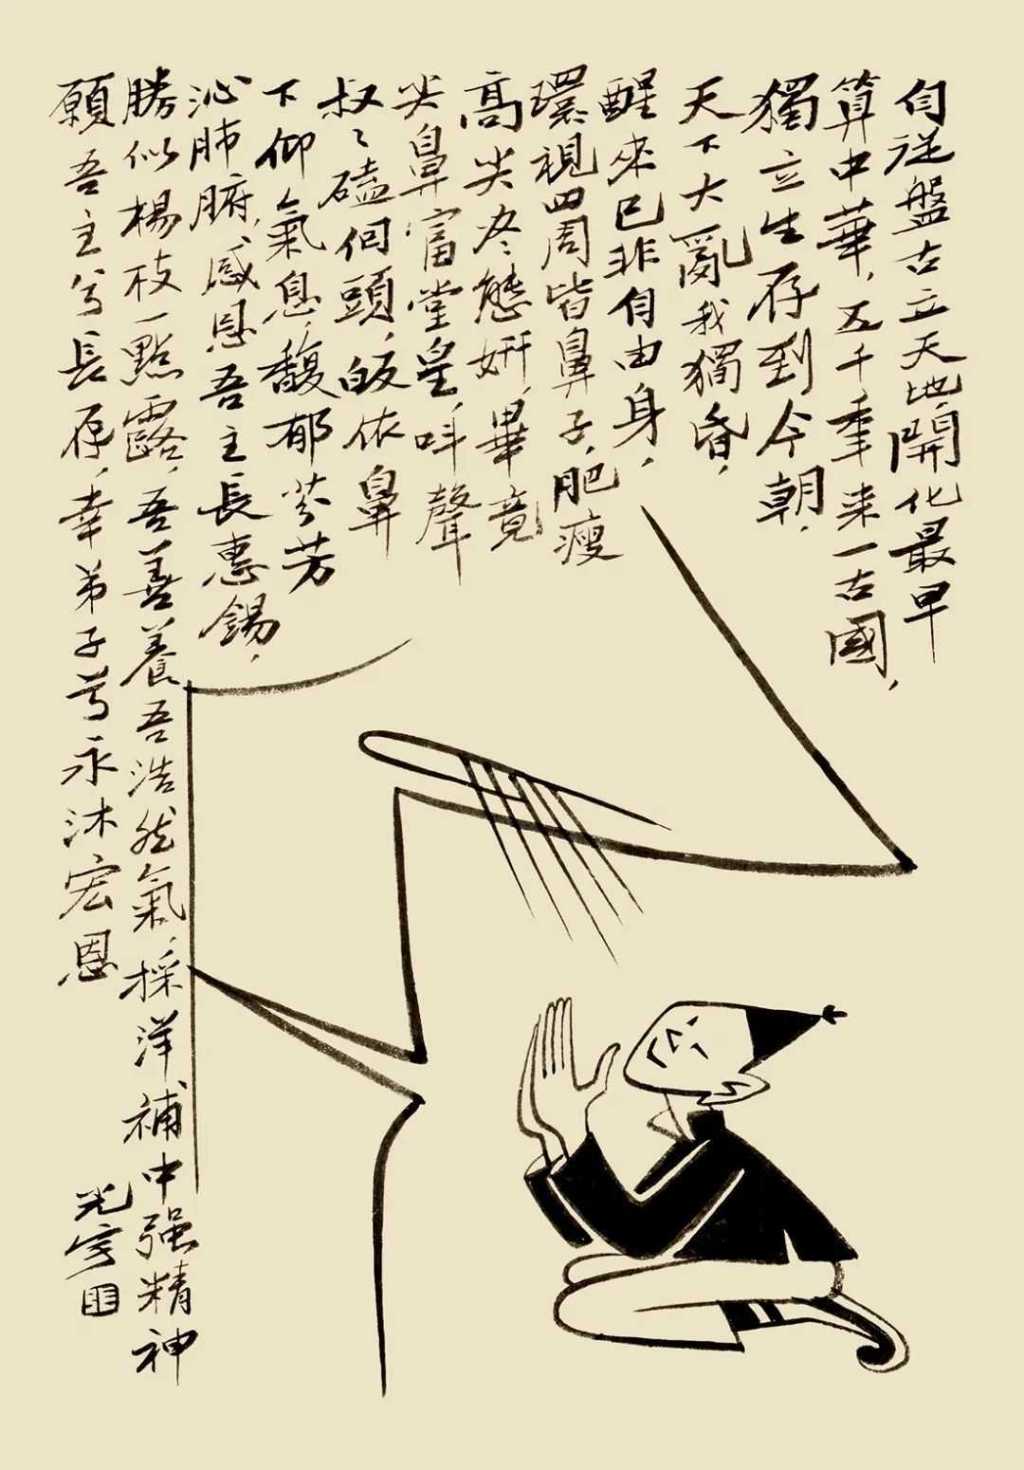 自從盤古立天地開化最早
算中華，五千年来一古國，
獨立生存到今朝，
天下大亂我獨昏，
醒來已非自由身，
環視四周皆鼻子，肥瘦
高尖尽態妍，畢竟
尖鼻富堂皇，叫聲
叔々磕個頭，皈依鼻
下仰氣息，馥郁芬芳
沁肺腑，感恩吾主長惠錫，
勝似楊枝一點露，吾善養吾浩然氣，採洋補中强精神
願吾主兮長存，幸弟子等永沐宏恩
光宇